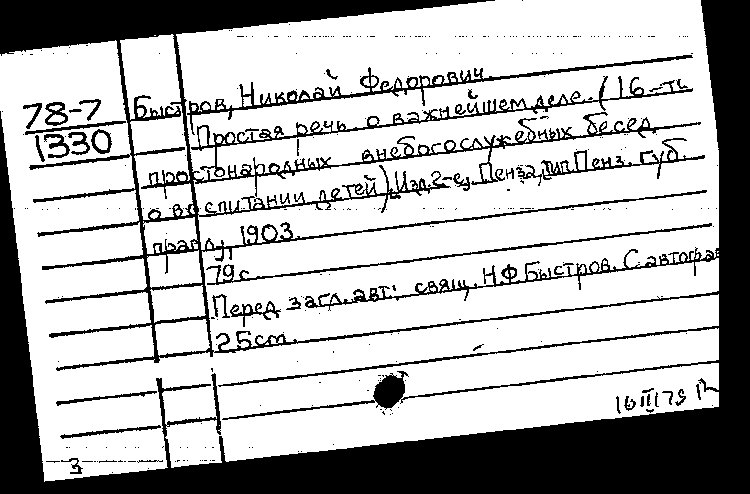 78-7
1330
Быстров, Николай Федорович.
Простая речь о важнейшем деле. (16-ть
простонародных внебогослужебных бесед
о воспитании детей). Изд. 2-е, Пенза, тип. Пенз. губ.
правл., 1903.
79 с.
Перед загл. авт.: свящ. Н.Ф Быстров. С автограф
25 cm.
16 III 79
3